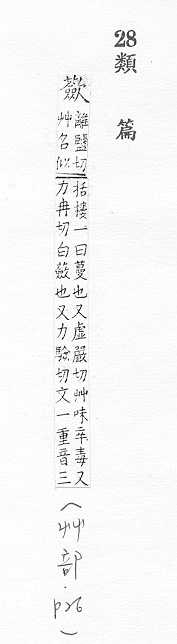 28
類篇
蘝
離鹽切
艸名似
括接一曰蔓也又虛嚴切艸味辛毒又
力冉切白蘝也又力驗切文一重音三
(艸部.p26)